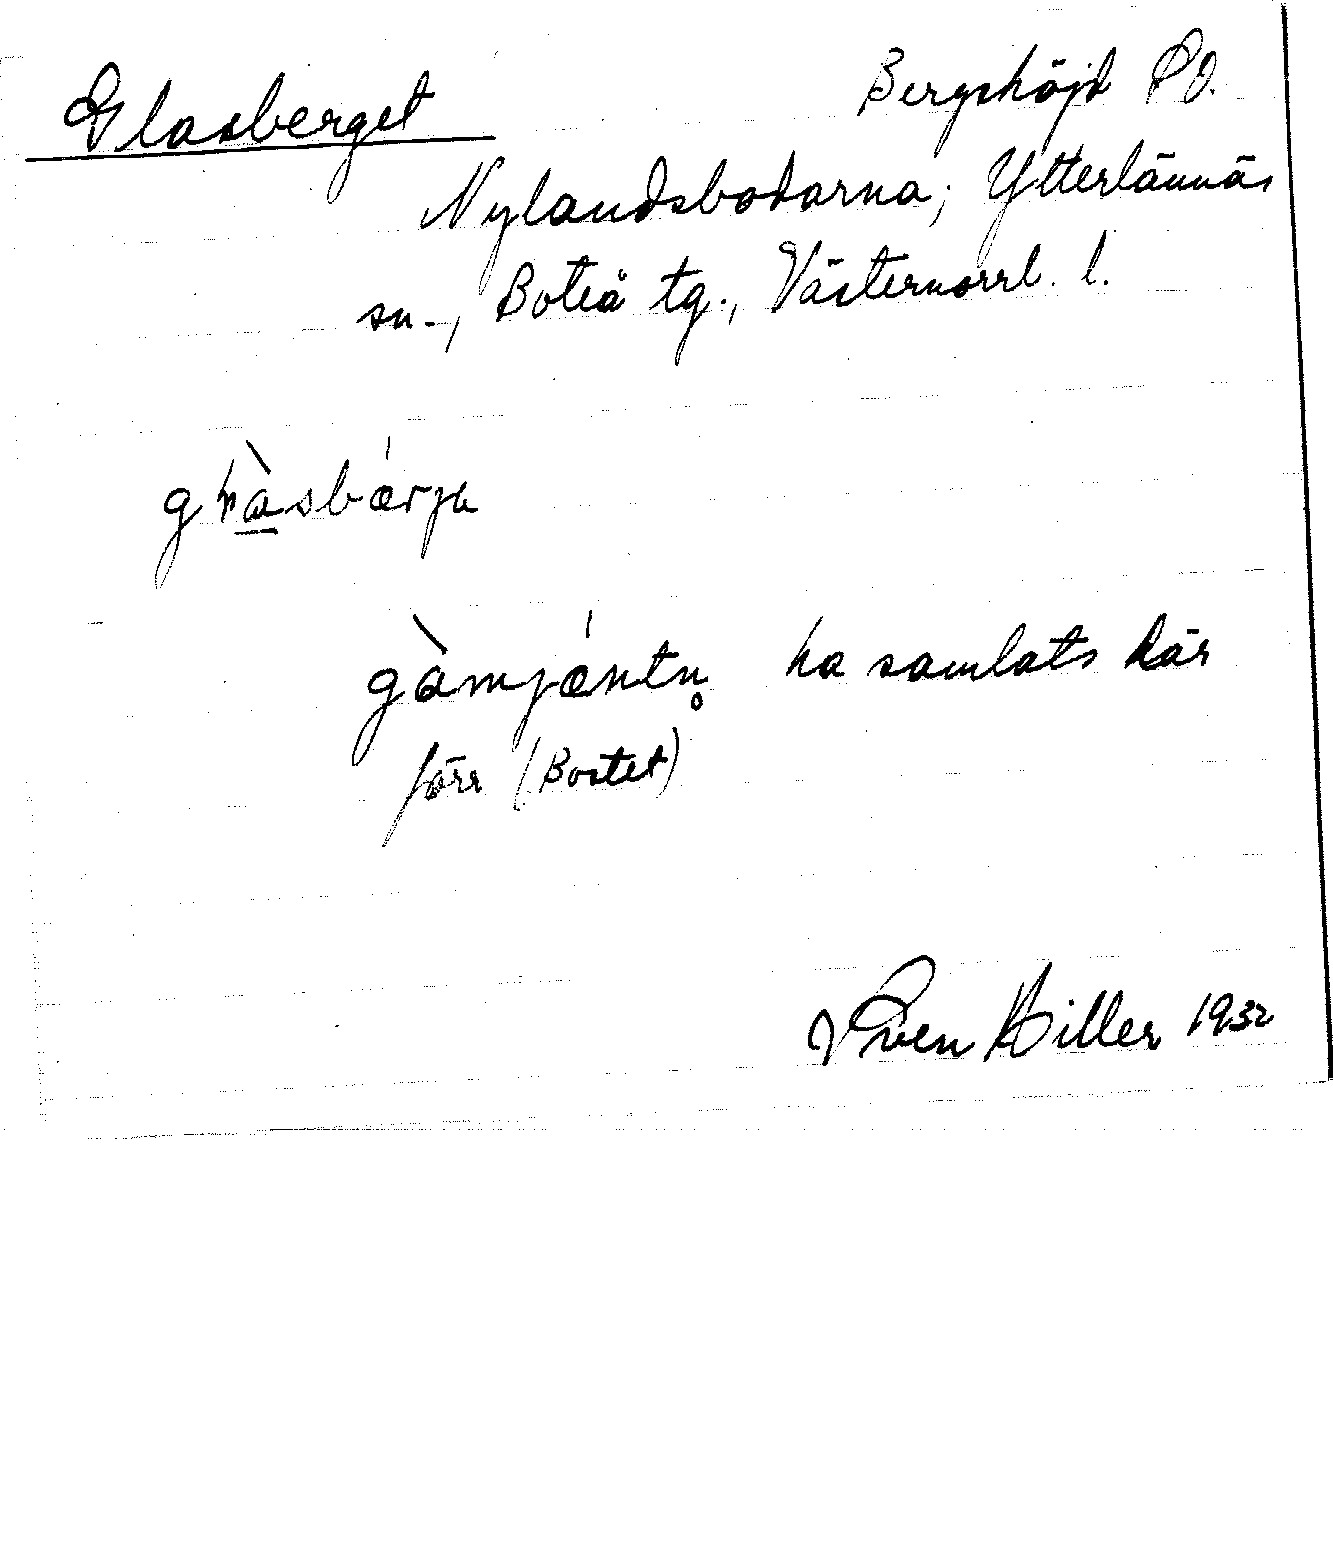 Glasberget
Bergshöjd SO.
Nylandsbodarna; Ytterlännäs
sn., Boteå tg., Västernorrl. l.
glàsbǽrjа
gàmjǽntn̥ ha samlats här
förr (Bostet)
Sven Hiller 1932